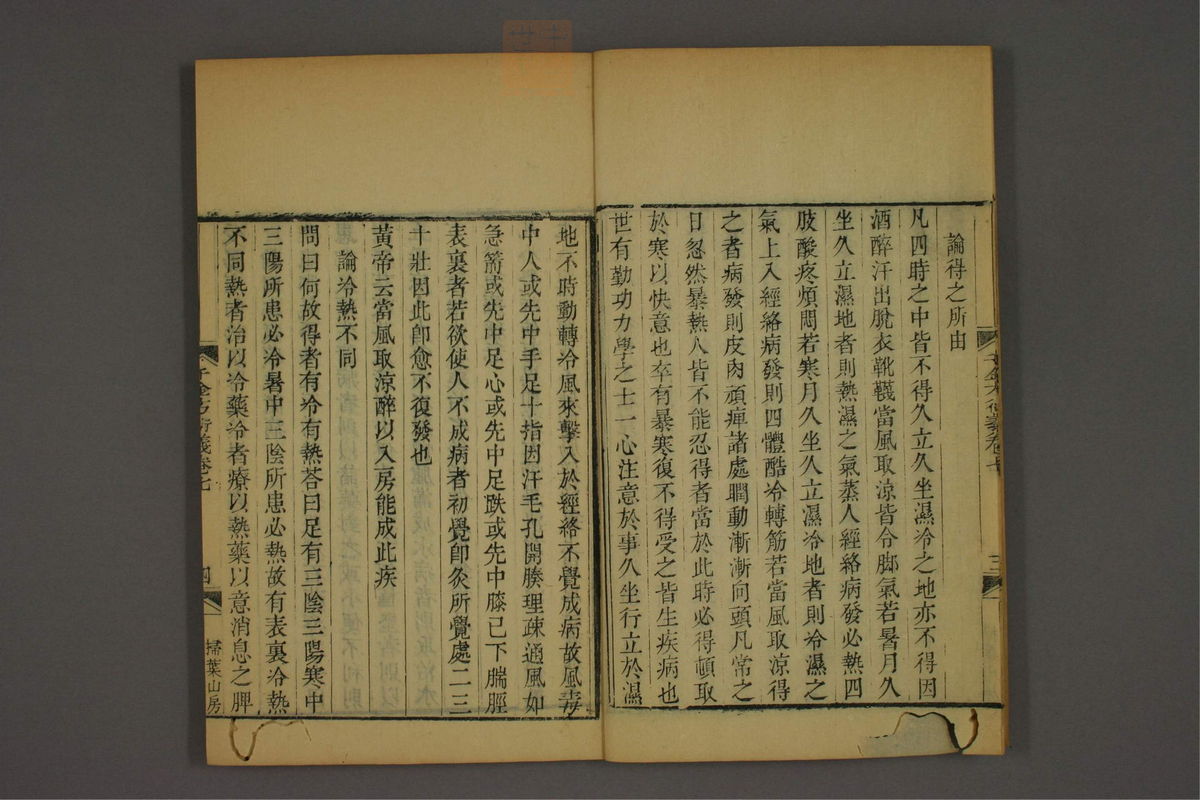 論得之所由
凡四時之中皆不得久立久坐濕冷之地亦不得因
酒醉汗出脫衣靴韈當風取涼皆令脚氣若暑月久
坐久立濕地者則熱濕之氣蒸人經絡病發必熱四
肢酸疼煩悶若寒月久坐久立濕冷地者則冷濕之
氣上入經絡病發則四體酷冷轉筋若當風取涼得
之者病發則皮肉頑痺諸處瞤動漸漸向頭凡常之
日忽然暴熱人皆不能忍得者當於此時必得頓取
於寒以快意也卒有暴寒復不得受之皆生疾病也
世有勤功力學之士一心注意於事久坐行立於濕
地不時動轉冷風來擊入於經絡不覺成病故風毒
中人或先中手足十指因汗毛孔開腠理疎通風如
急箭或先中足心或先中足趺或先中膝已下腨脛
表裏者若欲使人不成病者初覺卽灸所覺處二三
十壯因此卽愈不復發也
黃帝云當風取涼醉以入房能成此疾
論冷熱不同
問曰何故得者有冷有熱荅曰足有三陰三陽寒中
三陽所患必冷暑中三陰所患必熱故有表裏冷熱
不同熱者治以冷藥冷者療以熱藥以意消息之脾
千金方衍義卷七
四
掃葉山房